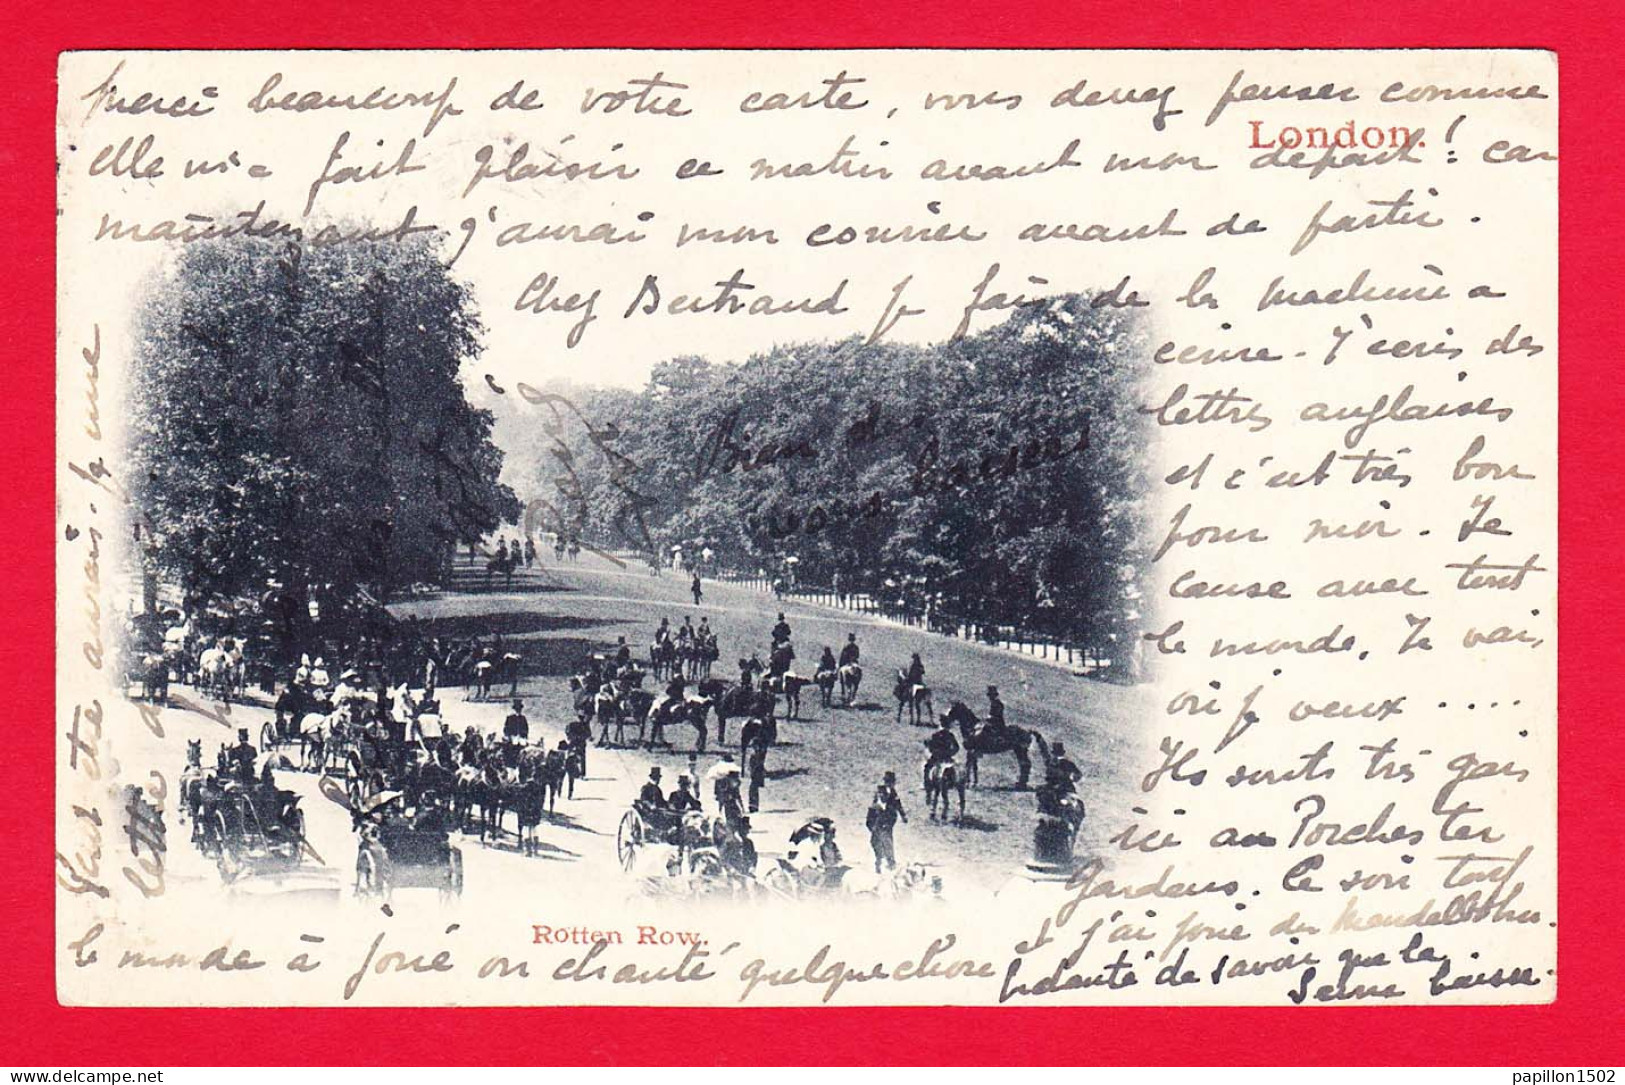 Merci beaucoup de votre carte, vous devez penser comme
London.
elle m'a fait plaisir ce matin avant mon départ! car
maintenant j'aurai mon courrier avant de partir.
Chez Bertrand je fais de la machine a
ecrire. J'ecris des
lettres anglaises
et c'est très bon
pour moi. Je
cause avec tout
le monde. Je vais
où je veux....
Ils sonts très gais
ici au Porchester
Gardens. Ce soir tout
le monde à joué ou chanté quelque chose
et j'ai joué du Mendelssohn.
enchanté de savoir que la
Seine baisse.
Bien des
bons baisers
Peut être aurais-je une
lettre
Rotten Row.
papillon1502